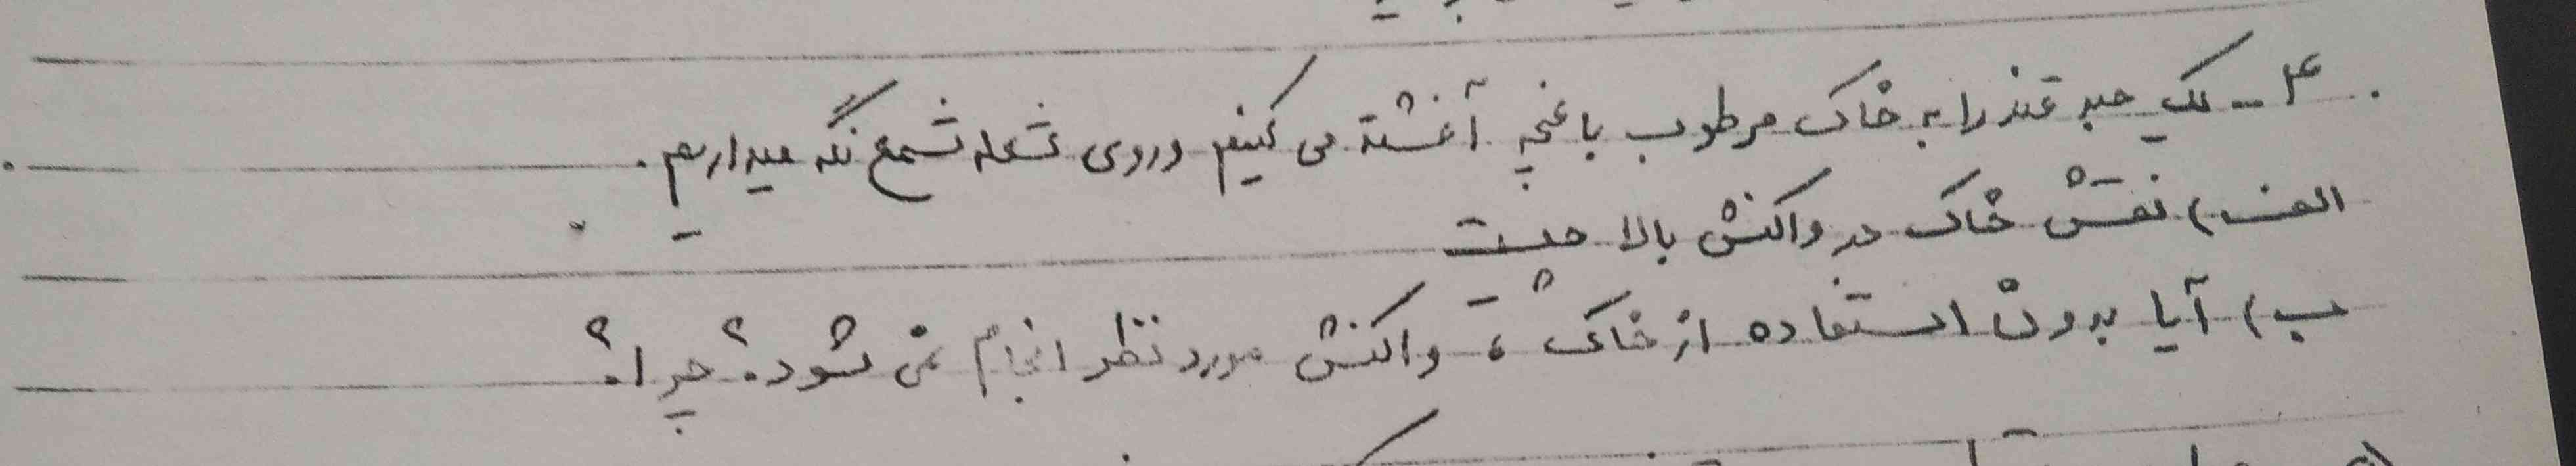 ۴ - یک حبه قند را به خاک مرطوب باغچه آغشته می کنیم و روی شعله شمع نگه میداریم.
الف) نقش خاک در واکنش بالا چیست
ب) آیا بدون استفاده از خاک، واکنش مورد نظر انجام نمی شود؟ چرا؟